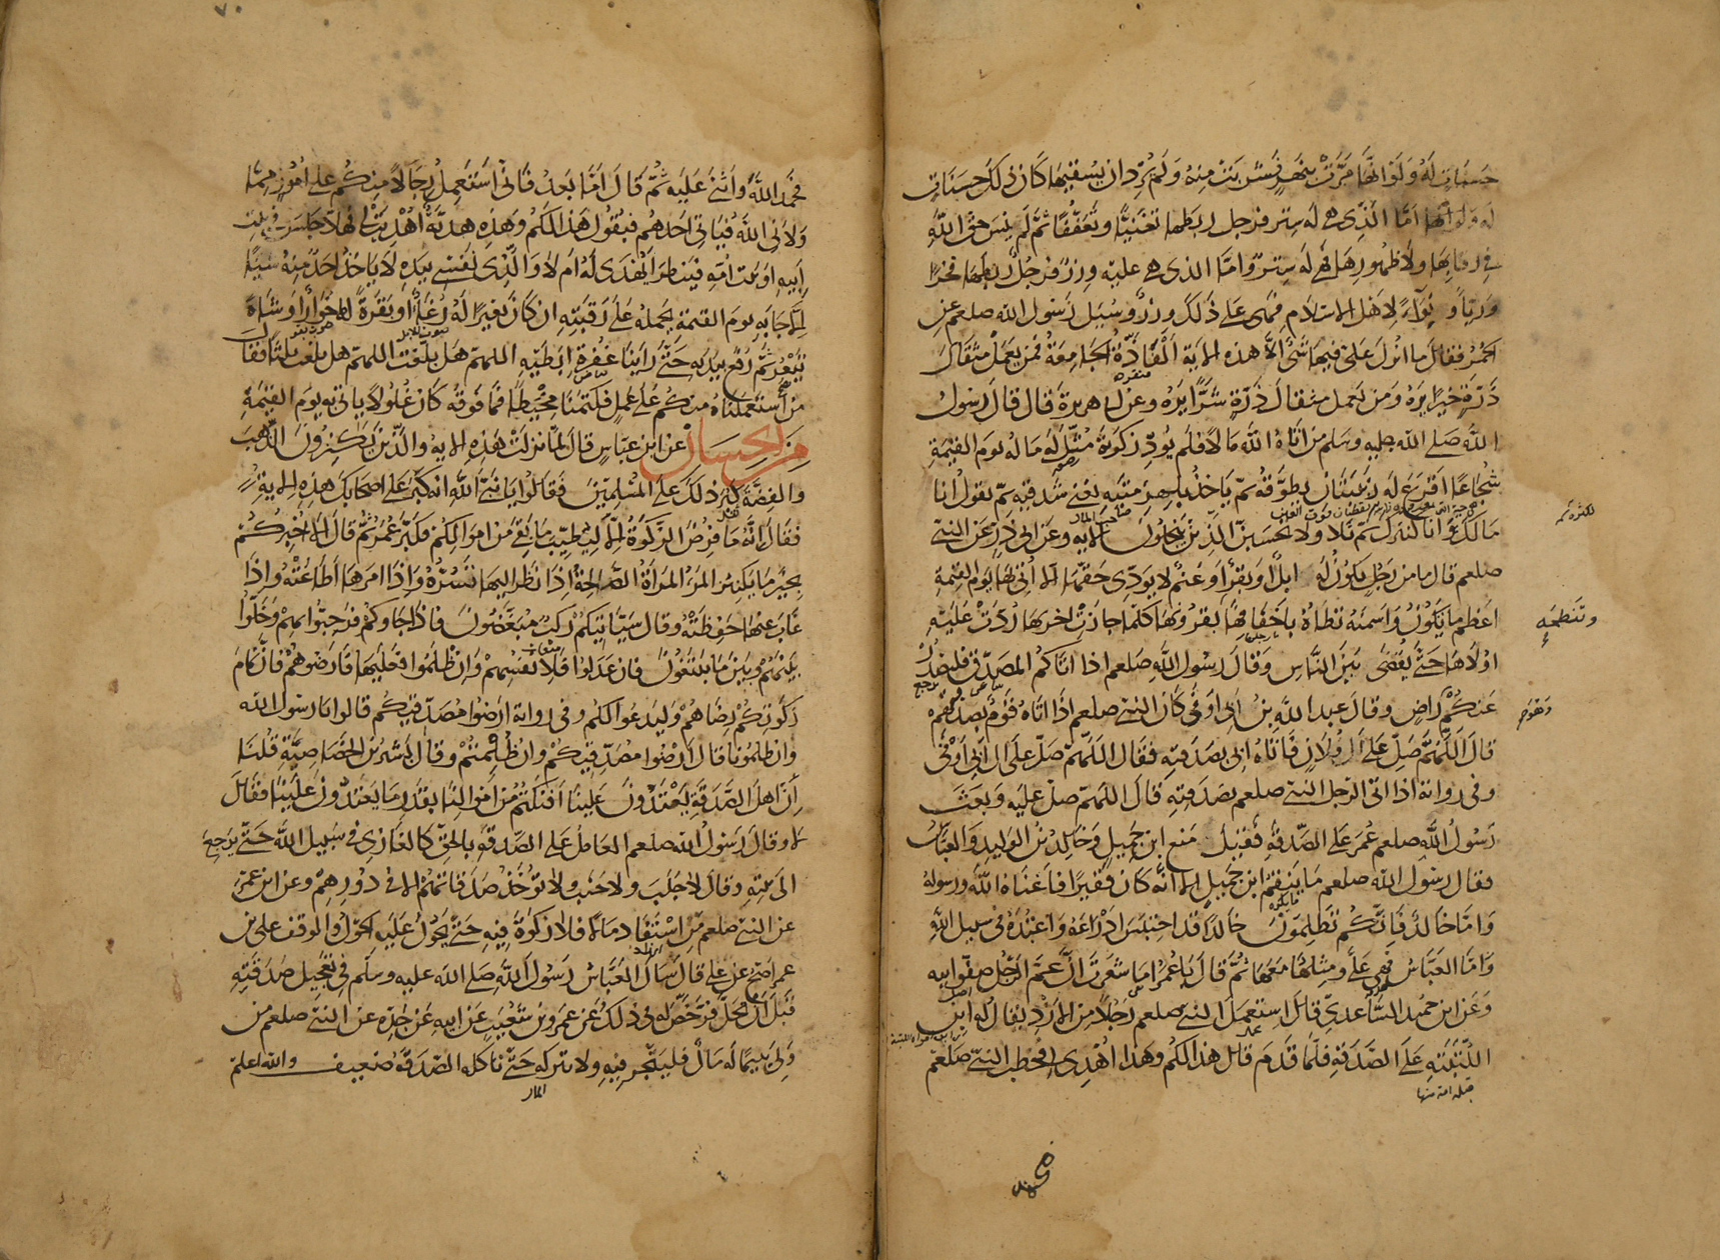 حسنات له ولو انها مرت بنهر فشربت منه ولم يرد ان يسقيها كان ذلك حسنات
له واما الذي هي له ستر فرجل ربطها تغنيا وتعففا ثم لم ينس حق الله
في رقابها ولا ظهورها فهي له ستر واما الذي هي عليه وزر فرجل ربطها فخرا
ورياء ونواء لاهل الاسلام فهي على ذلك وزر وسئل رسول الله صلعم عن
الحمر فقال ما انزل على فيها شئ الا هذه الاية الفاذة الجامعة فمن يعمل مثقال
ذرة خيرا يره ومن يعمل مثقال ذرة شرا يره وعن ابي هريرة قال قال رسول
الله صلى الله عليه وسلم من اتاه الله مالا فلم يؤد زكوته مثل له ماله يوم القيمة
شجاعا اقرع له زبيبتان يطوقه ثم ياخذ بلهزمتيه يعني شدقيه ثم يقول انا
مالك انا كنزك ثم تلا ولا تحسبن الذين يبخلون الاية وعن ابي ذر عن النبي
صلعم قال ما من رجل يكون له ابل او بقر او غنم لا يودي حقها الا اتي بها يوم القيمة
اعظم ما يكون واسمنه تطاه باخفافها بقرونها كلما جازت اخريها ردت عليه
وتنطحه
اولاها حتى يقضى بين الناس وقال رسول الله صلعم اذا اتاكم المصدق فليصدر
عنكم راض وقال عبد الله بن ابي اوفى كان النبي صلعم اذا اتاه قوم بصدقتهم
قال اللهم صل على ال فلان فاتاه ابي بصدقته فقال اللهم صل على ال ابي اوفى
وفي رواية اذا اتى الرجل النبي صلعم بصدقته قال اللهم صل عليه وبعث
رسول الله صلعم عمر على الصدقة فقيل منع ابن جميل وخالد بن الوليد والعباس
فقال رسول الله صلعم ما ينقم ابن جميل الا انه كان فقيرا فاغناه الله ورسوله
واما خالد فانكم تظلمون خالدا قد احتبس ادراعه واعتده في سبيل الله
واما العباس فهي علي ومثلها معها ثم قال يا عمر اما شعرت ان عم الرجل صنو ابيه
وعن ابي حميد الساعدي قال استعمل النبي صلعم رجلا من الازد يقال له ابن
اللتبية على الصدقة فلما قدم قال هذا لكم وهذا اهدي لي فخطب النبي صلعم
فحمد الله واثنى عليه ثم قال اما بعد فاني استعمل رجالا منكم على امور مما
ولاني الله فياتي احدهم فيقول هذا لكم وهذه هدية اهديت لي فهلا جلس في بيت
ابيه او بيت امه فينظر ايهدى له ام لا والذي نفسي بيده لا ياخذ احد منه شيئا
الا جا به يوم القيمة يحمله على رقبته ان كان بعيرا له رغاء او بقرة لها خوار او شاة
تيعر ثم رفع يديه حتى راينا عفرة ابطيه اللهم هل بلغت اللهم هل بلغت ثلثا فقال
من استعملناه منكم على عمل فكتمنا مخيطا فما فوقه كان غلولا ياتي به يوم القيمة
من الحسان عن ابن عباس قال لما نزلت هذه الاية والذين يكنزون الذهب
والفضة كبر ذلك على المسلمين فقالوا يا نبي الله انه كبر على اصحابك هذه الاية
فقال انه ما فرض الزكوة الا ليطيب ما بقي من اموالكم فكبر عمر ثم قال الا اخبركم
بخير ما يكنز المرء المراة الصالحة اذا نظر اليها تسره واذا امرها اطاعته واذا
غاب عنها حفظته وقال سياتيكم ركب مبغضون فاذا جاوكم فرحبوا بهم وخلوا
بينهم وبين ما يبتغون فان عدلوا فلانفسهم وان ظلموا فعليها فارضوهم فان تمام
زكوتكم رضاهم وليدعوا لكم وفي رواية ارضوا مصدقيكم قالوا يا رسول الله
وان ظلمونا قال ارضوا مصدقيكم وان ظلمتم وقال بشير بن الخصاصية قلنا
ان اهل الصدقة يعتدون علينا افنكتم من اموالنا بقدر ما يعتدون علينا فقال
لا وقال رسول الله صلعم العامل على الصدقة بالحق كالغازي في سبيل الله حتى يرجع
الى بيته وقال لا جلب ولا جنب ولا توخذ صدقاتهم الا في دورهم وعن ابن عمر
عن النبي صلعم من استفاد مالا فلا زكوة فيه حتى يحول عليه الحول والوقف على ابن
عمر اصح عن علي قال سال العباس رسول الله صلى الله عليه وسلم في تعجيل صدقته
قبل ان تحل فرخص له في ذلك عن عمرو بن شعيب عن ابيه عن جده عن النبي صلعم من
ولي يتيما له مال فليتجر فيه ولا يتركه حتى تاكله الصدقة ضعيف والله اعلم
المال